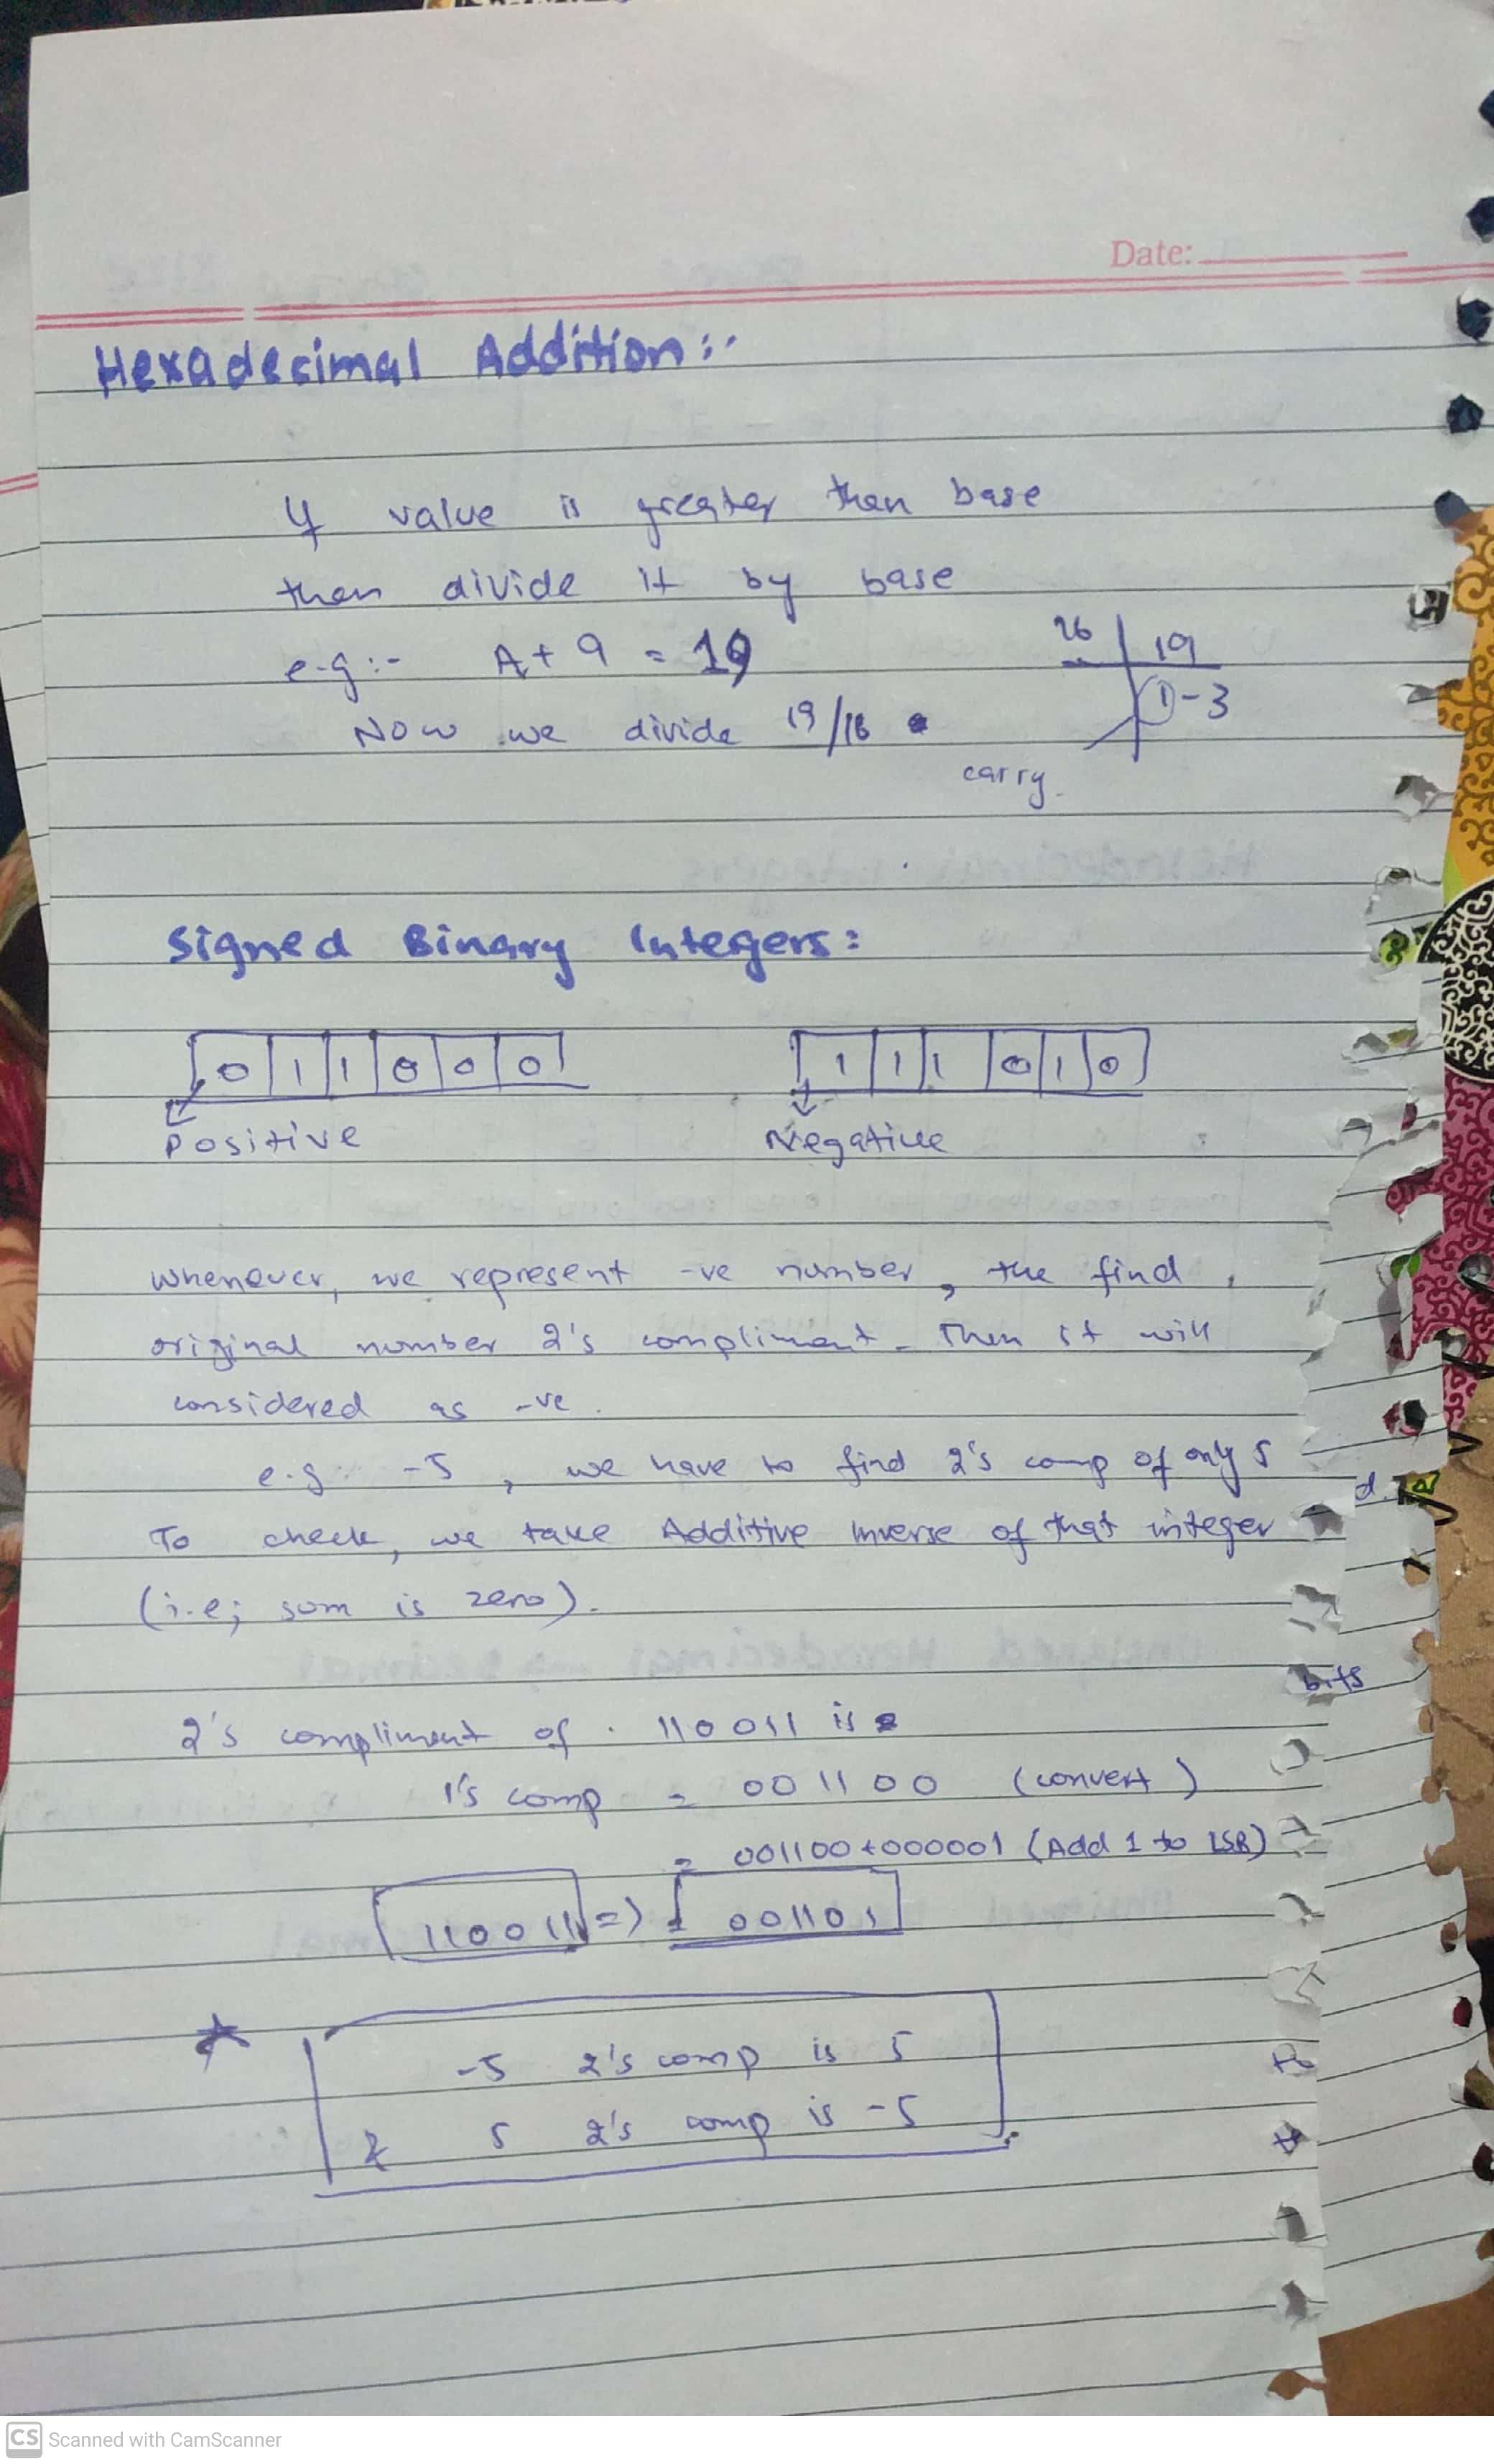 Date:
Hexadecimal Addition:-
If value is greater then base
then divide it by base
e.g:- A + 9 = 19
16 | 19
Now we divide 19/16
1-3
carry.
Signed Binary Integers:
0 1 1 0 0 0
1 1 1 0 1 0
Positive
Negative
Whenever, we represent -ve number, the find
original number 2's compliment. Then it will
considered as -ve.
e.g: -5, we have to find 2's comp of only 5
d.
To check, we take Additive Inverse of that integer
(i.e; sum is zero).
bits
2's compliment of 110011 is
1's comp = 001100 (convert)
= 001100 + 000001 (Add 1 to LSB)
110011 => 001101
-5 2's comp is 5
to
& 5 2's comp is -5
CS Scanned with CamScanner